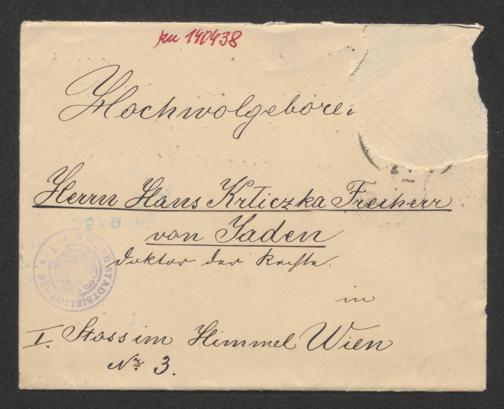 zu 140438
Hochwolgeboren
Herrn Hans Krticzka Freiherr
von Jaden
Doktor der Rechte.
in
I. Stoss im Himmel Wien
Nr. 3.
STADTBIBLIOTHEK